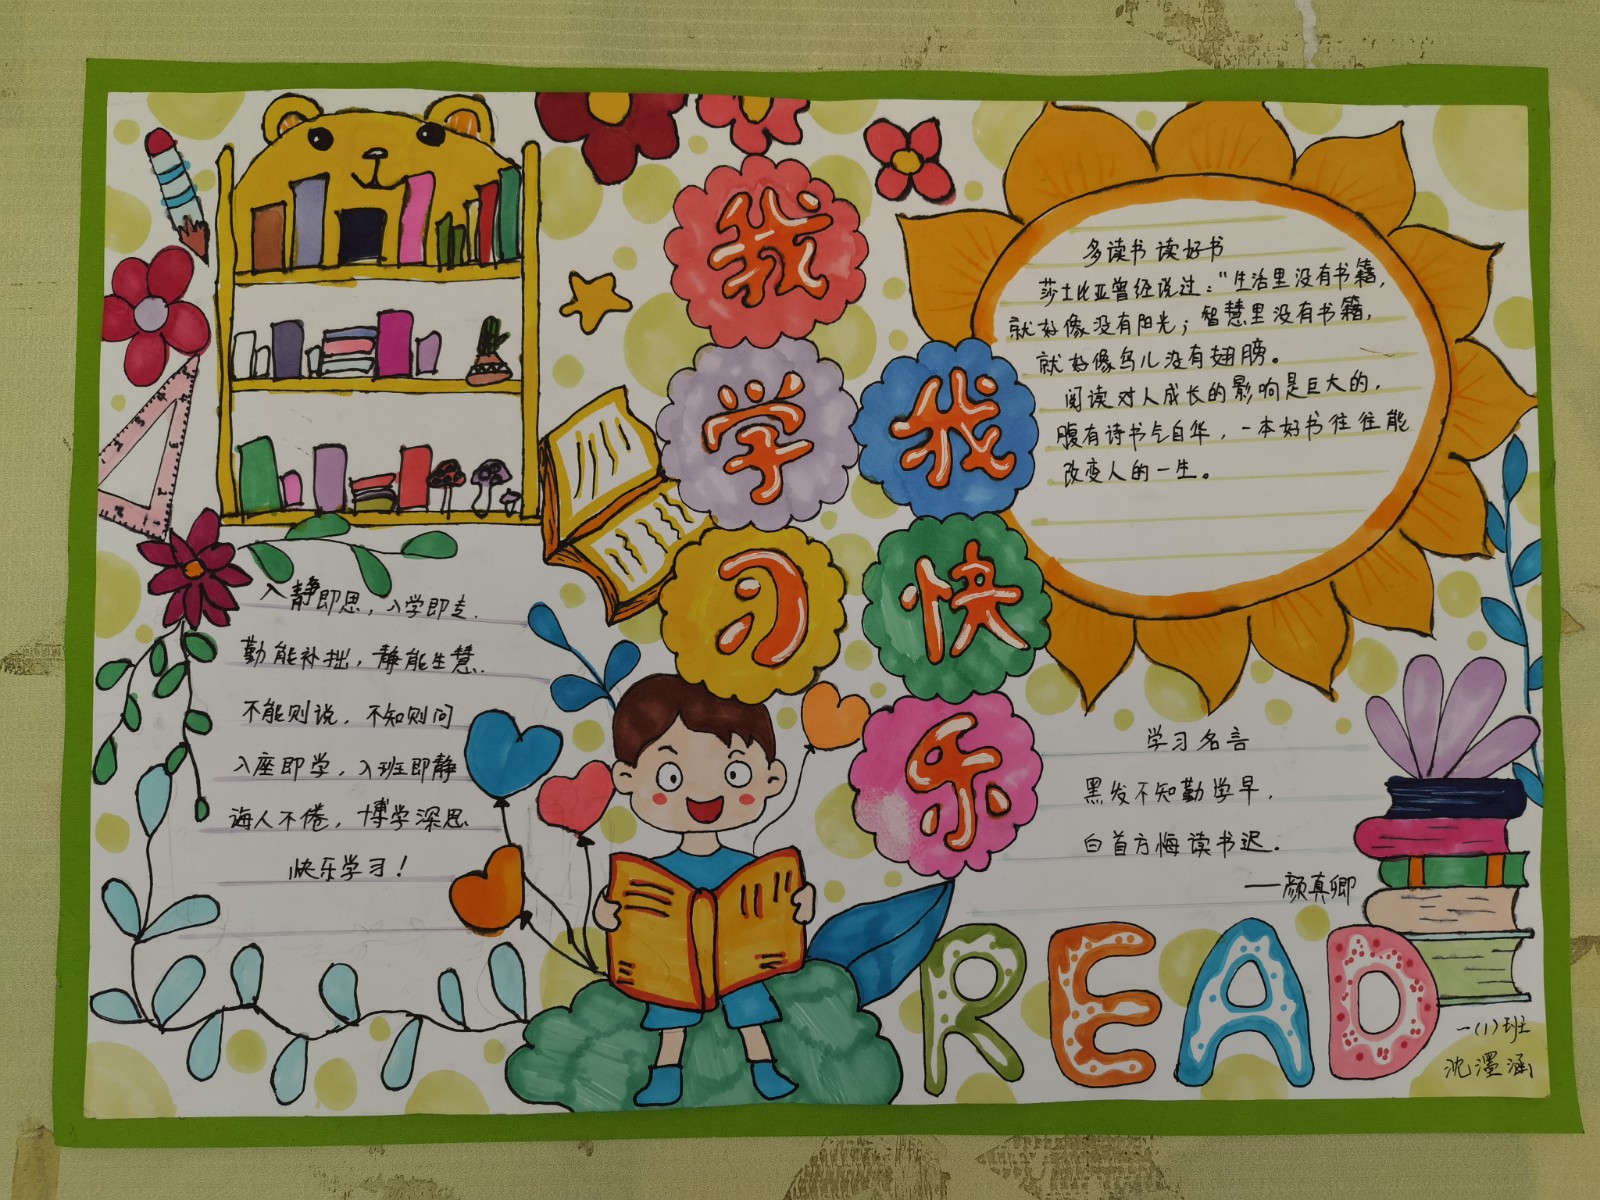 我学习
我快乐
多读书 读好书
莎士比亚曾经说过："生活里没有书籍，
就好像没有阳光；智慧里没有书籍，
就好像鸟儿没有翅膀。
阅读对人成长的影响是巨大的，
腹有诗书气自华，一本好书往往能
改变人的一生。
入静即思，入学即专.
勤能补拙，静能生慧.
不能则说，不知则问
入座即学，入班即静
诲人不倦，博学深思
快乐学习！
学习名言
黑发不知勤学早，
白首方悔读书迟。
——颜真卿
READ
一(1)班
沈墨涵